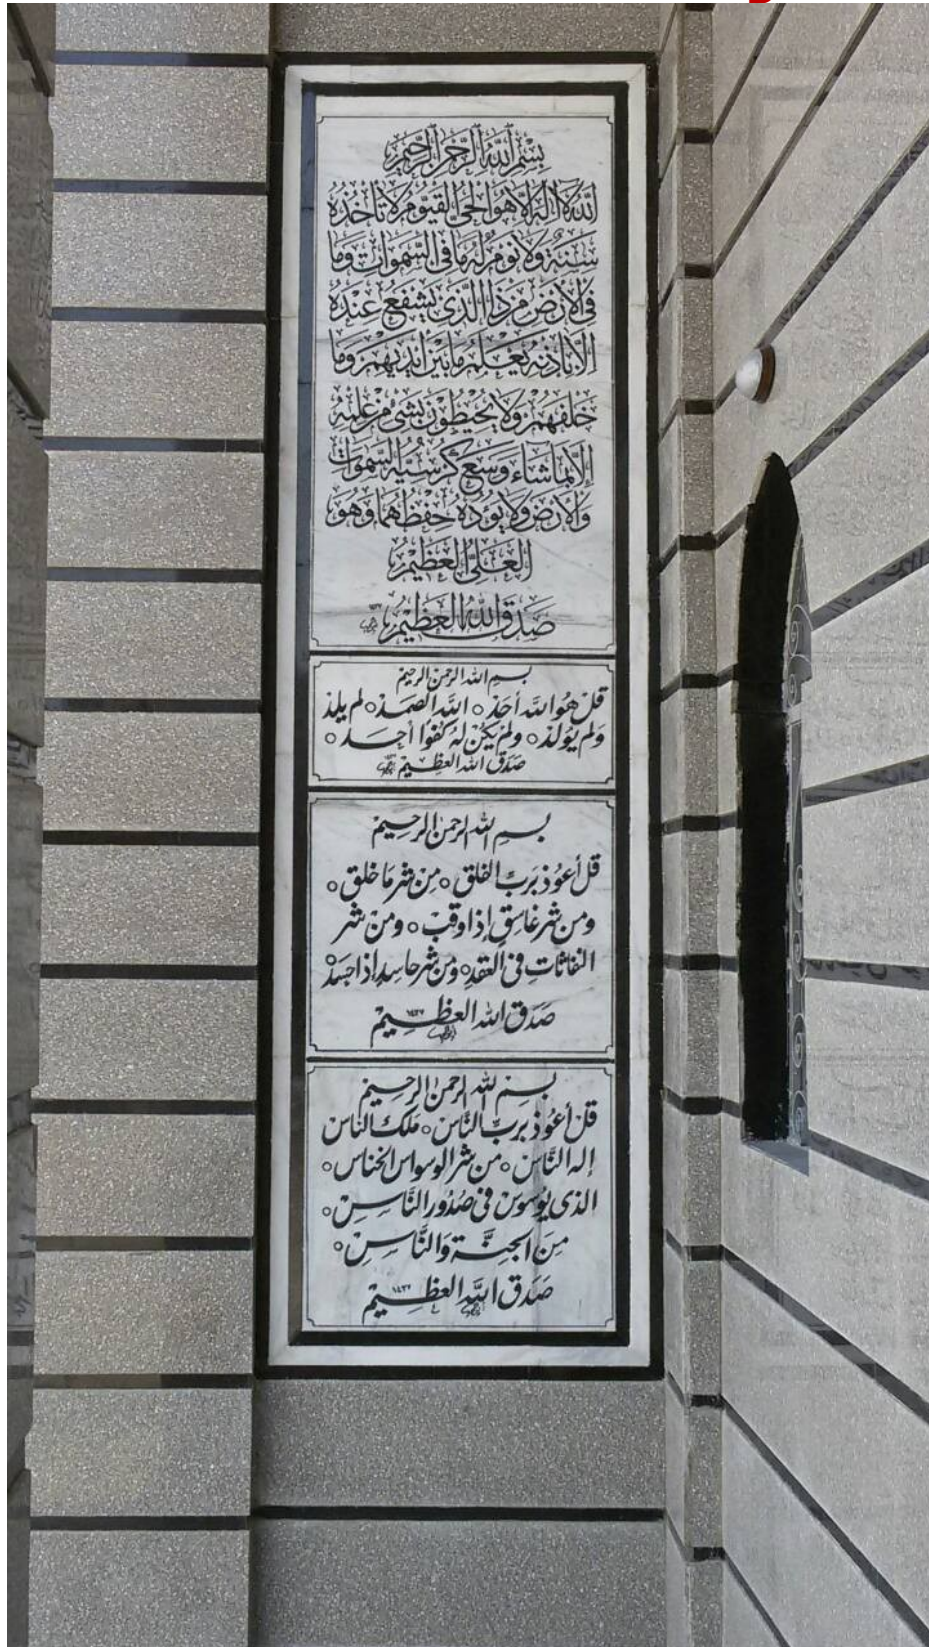 بِسْمِ اللَّهِ الرَّحْمَنِ الرَّحِيمِ
اللَّهُ لَا إِلَهَ إِلَّا هُوَ الْحَيُّ الْقَيُّومُ لَا تَأْخُذُهُ
سِنَةٌ وَلَا نَوْمٌ لَهُ مَا فِي السَّمَوَاتِ وَمَا
فِي الْأَرْضِ مَنْ ذَا الَّذِي يَشْفَعُ عِنْدَهُ
إِلَّا بِإِذْنِهِ يَعْلَمُ مَا بَيْنَ أَيْدِيهِمْ وَمَا
خَلْفَهُمْ وَلَا يُحِيطُونَ بِشَيْءٍ مِنْ عِلْمِهِ
إِلَّا بِمَا شَاءَ وَسِعَ كُرْسِيُّهُ السَّمَوَاتِ
وَالْأَرْضَ وَلَا يَؤُدُهُ حِفْظُهُمَا وَهُوَ
الْعَلِيُّ الْعَظِيمُ
صَدَقَ اللَّهُ الْعَظِيمُ
بسم الله الرحمن الرحيم
قل هُوَ اللَّه أحَدْ ٥ اللَّه الصمَدْ ٥ لم يلدْ
وَلم يُولَدْ ٥ ولمْ يَكُنْ لهُ كُفُوًا أحَد ٥
صَدَقَ الله العظِيمْ
بسم الله الرحمن الرحيم
قل أعُوذ بَربِّ الفلق ٥ مِنْ شر مَا خلق ٥
ومن شر غاسِقٍ إذا وقبْ ٥ ومنْ شر
النفاثاتِ في العقدِ ٥ ومن شر حاسِدٍ إذا حسَدْ ٥
صَدَق الله العظِيمْ ١٤٣٧
بسم الله الرحمن الرحيم
قل أعُوذ بَربِّ النَّاسْ ٥ ملك النَّاسْ
إله النَّاسْ ٥ من شر الوسواس الخناس ٥
الذى يُوسوسْ فى صُدُور النَّاسِ ٥
مِنَ الجِنَّة وَالنَّاسِ ٥
صَدَق اللَّه العظِيمْ ١٤٣٧